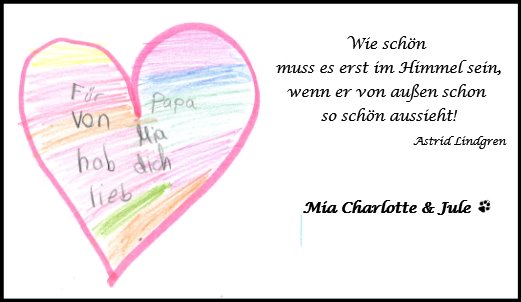 Für Papa
Von Mia
hab dich
lieb
Wie schön
muss es erst im Himmel sein,
wenn er von außen schon
so schön aussieht!
Astrid Lindgren
Mia Charlotte & Jule